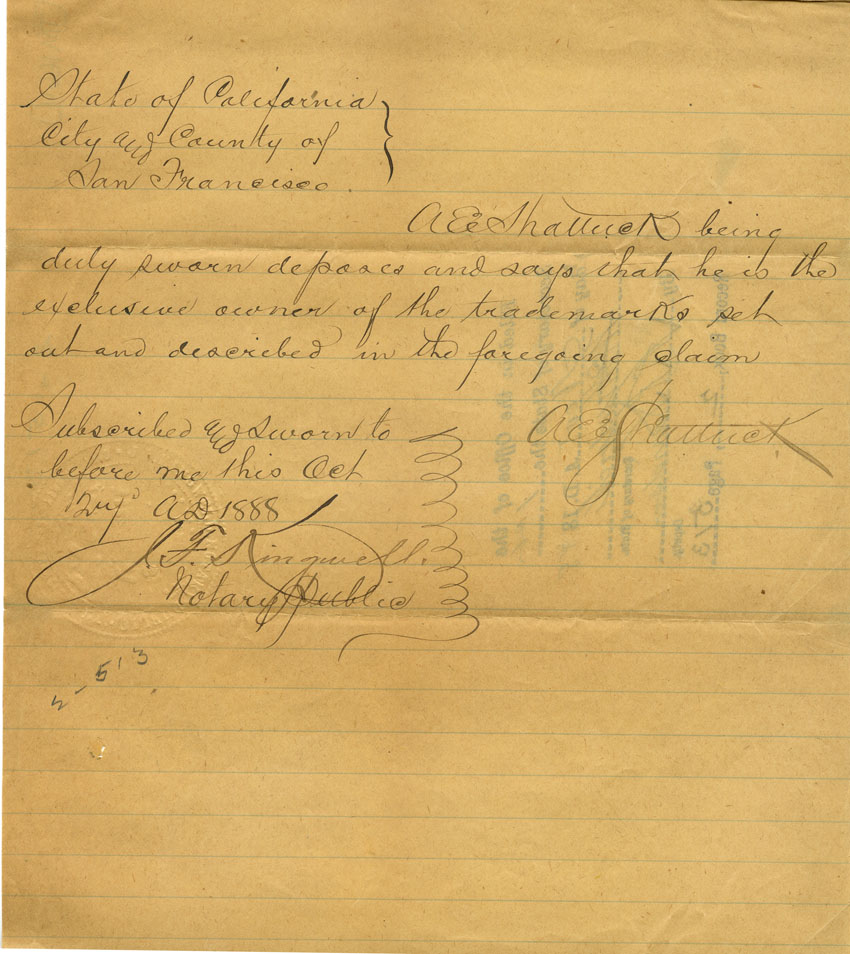 State of California
City and County of
San Francisco.
A E Shattuck being
duly sworn deposes and says that he is the
exclusive owner of the trademarks set
out and described in the foregoing claim
Subscribed and sworn to
before me this Oct
AD 1888
A E Shattuck
J. F. Kingwell.
Notary Public
2-513